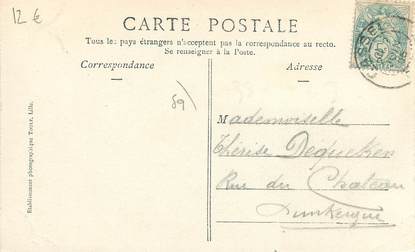 12 €
CARTE POSTALE
Tous les pays étrangers n'acceptent pas la correspondance au recto.
Se renseigner à la Poste.
Correspondance
Adresse
59)
Mademoiselle
Thérèse Dequeker
Rue du Chateau
Dunkerque
Etablissement photographique Tourte, Lille.